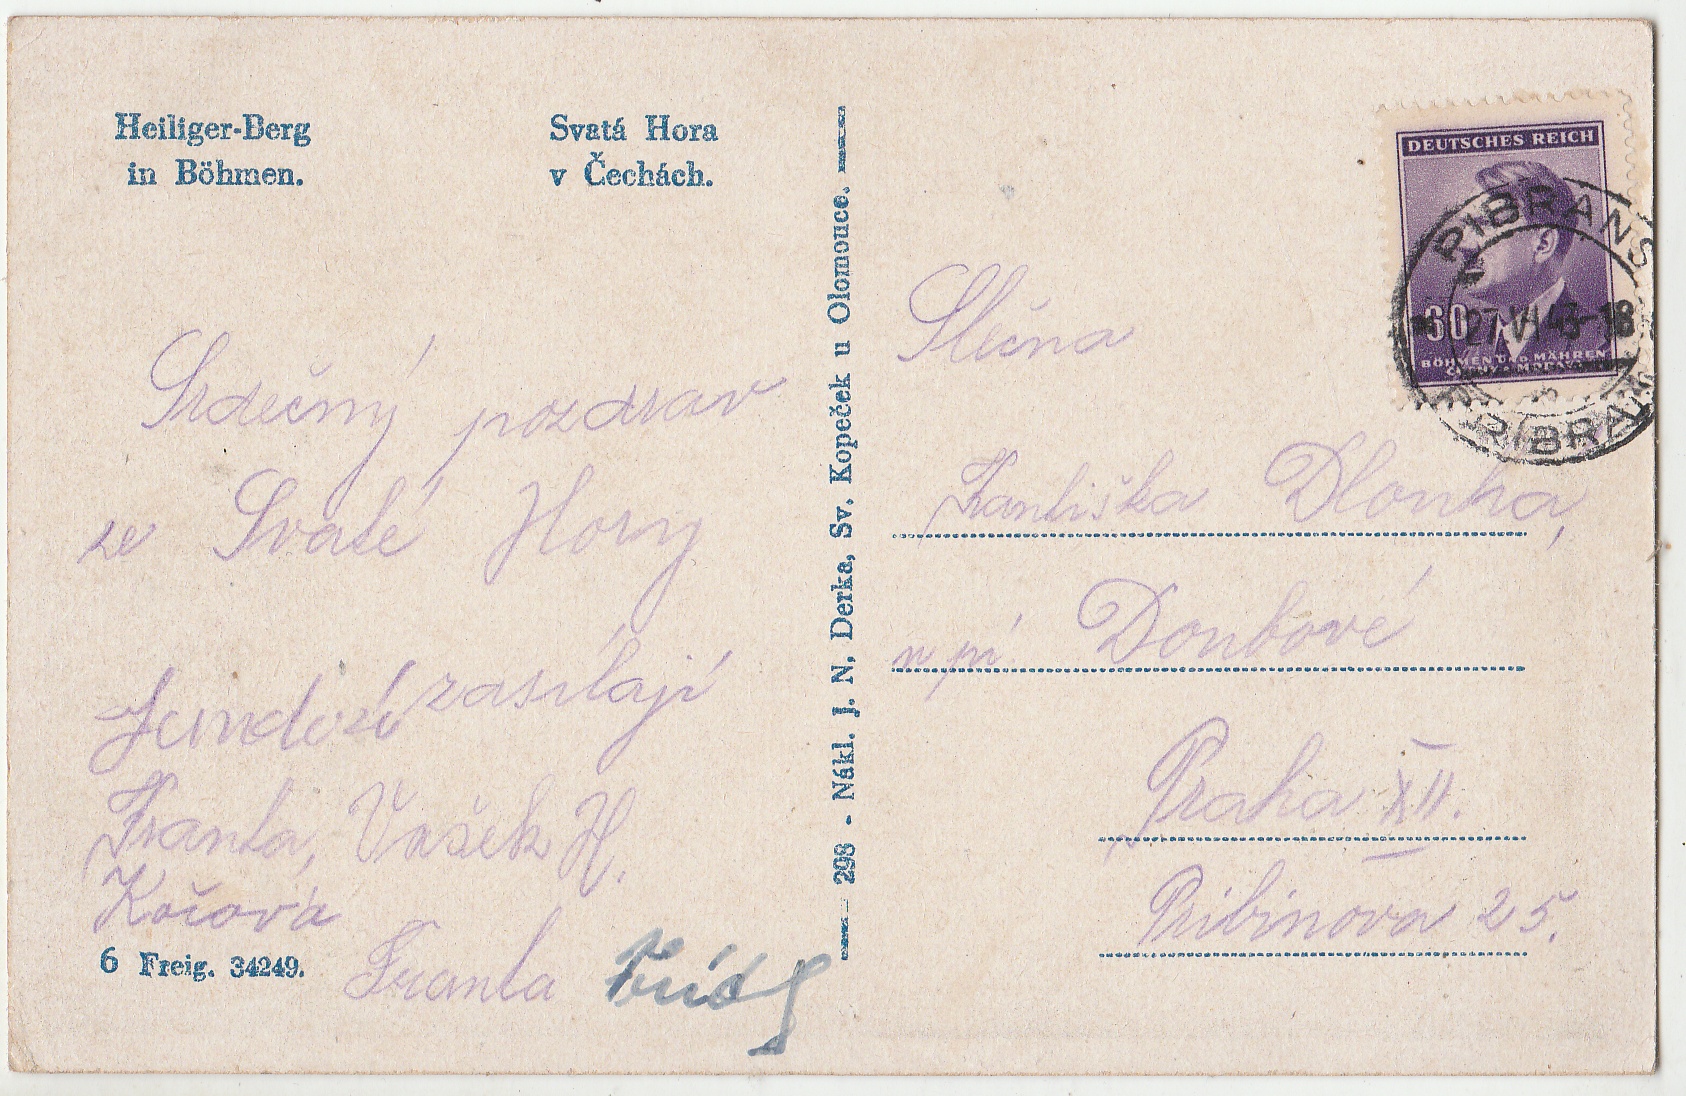 Heiliger-Berg
in Böhmen.
Svatá Hora
v Čechách.
Srdečný pozdrav
ze Svaté Hory
zasílají
Franta, Vašek H.
Kočová
Franta
6 Freig. 34249.
298 - Nákl. J. N. Derka, Sv. Kopeček u Olomouce.
DEUTSCHES REICH
60
BÖHMEN UND MÄHREN
PIBRANS
27 VI 43-18
PŘÍBRAM
Slečna
Františka Dlouhá,
u pí Doubové
Praha XII.
Přibinova 25.